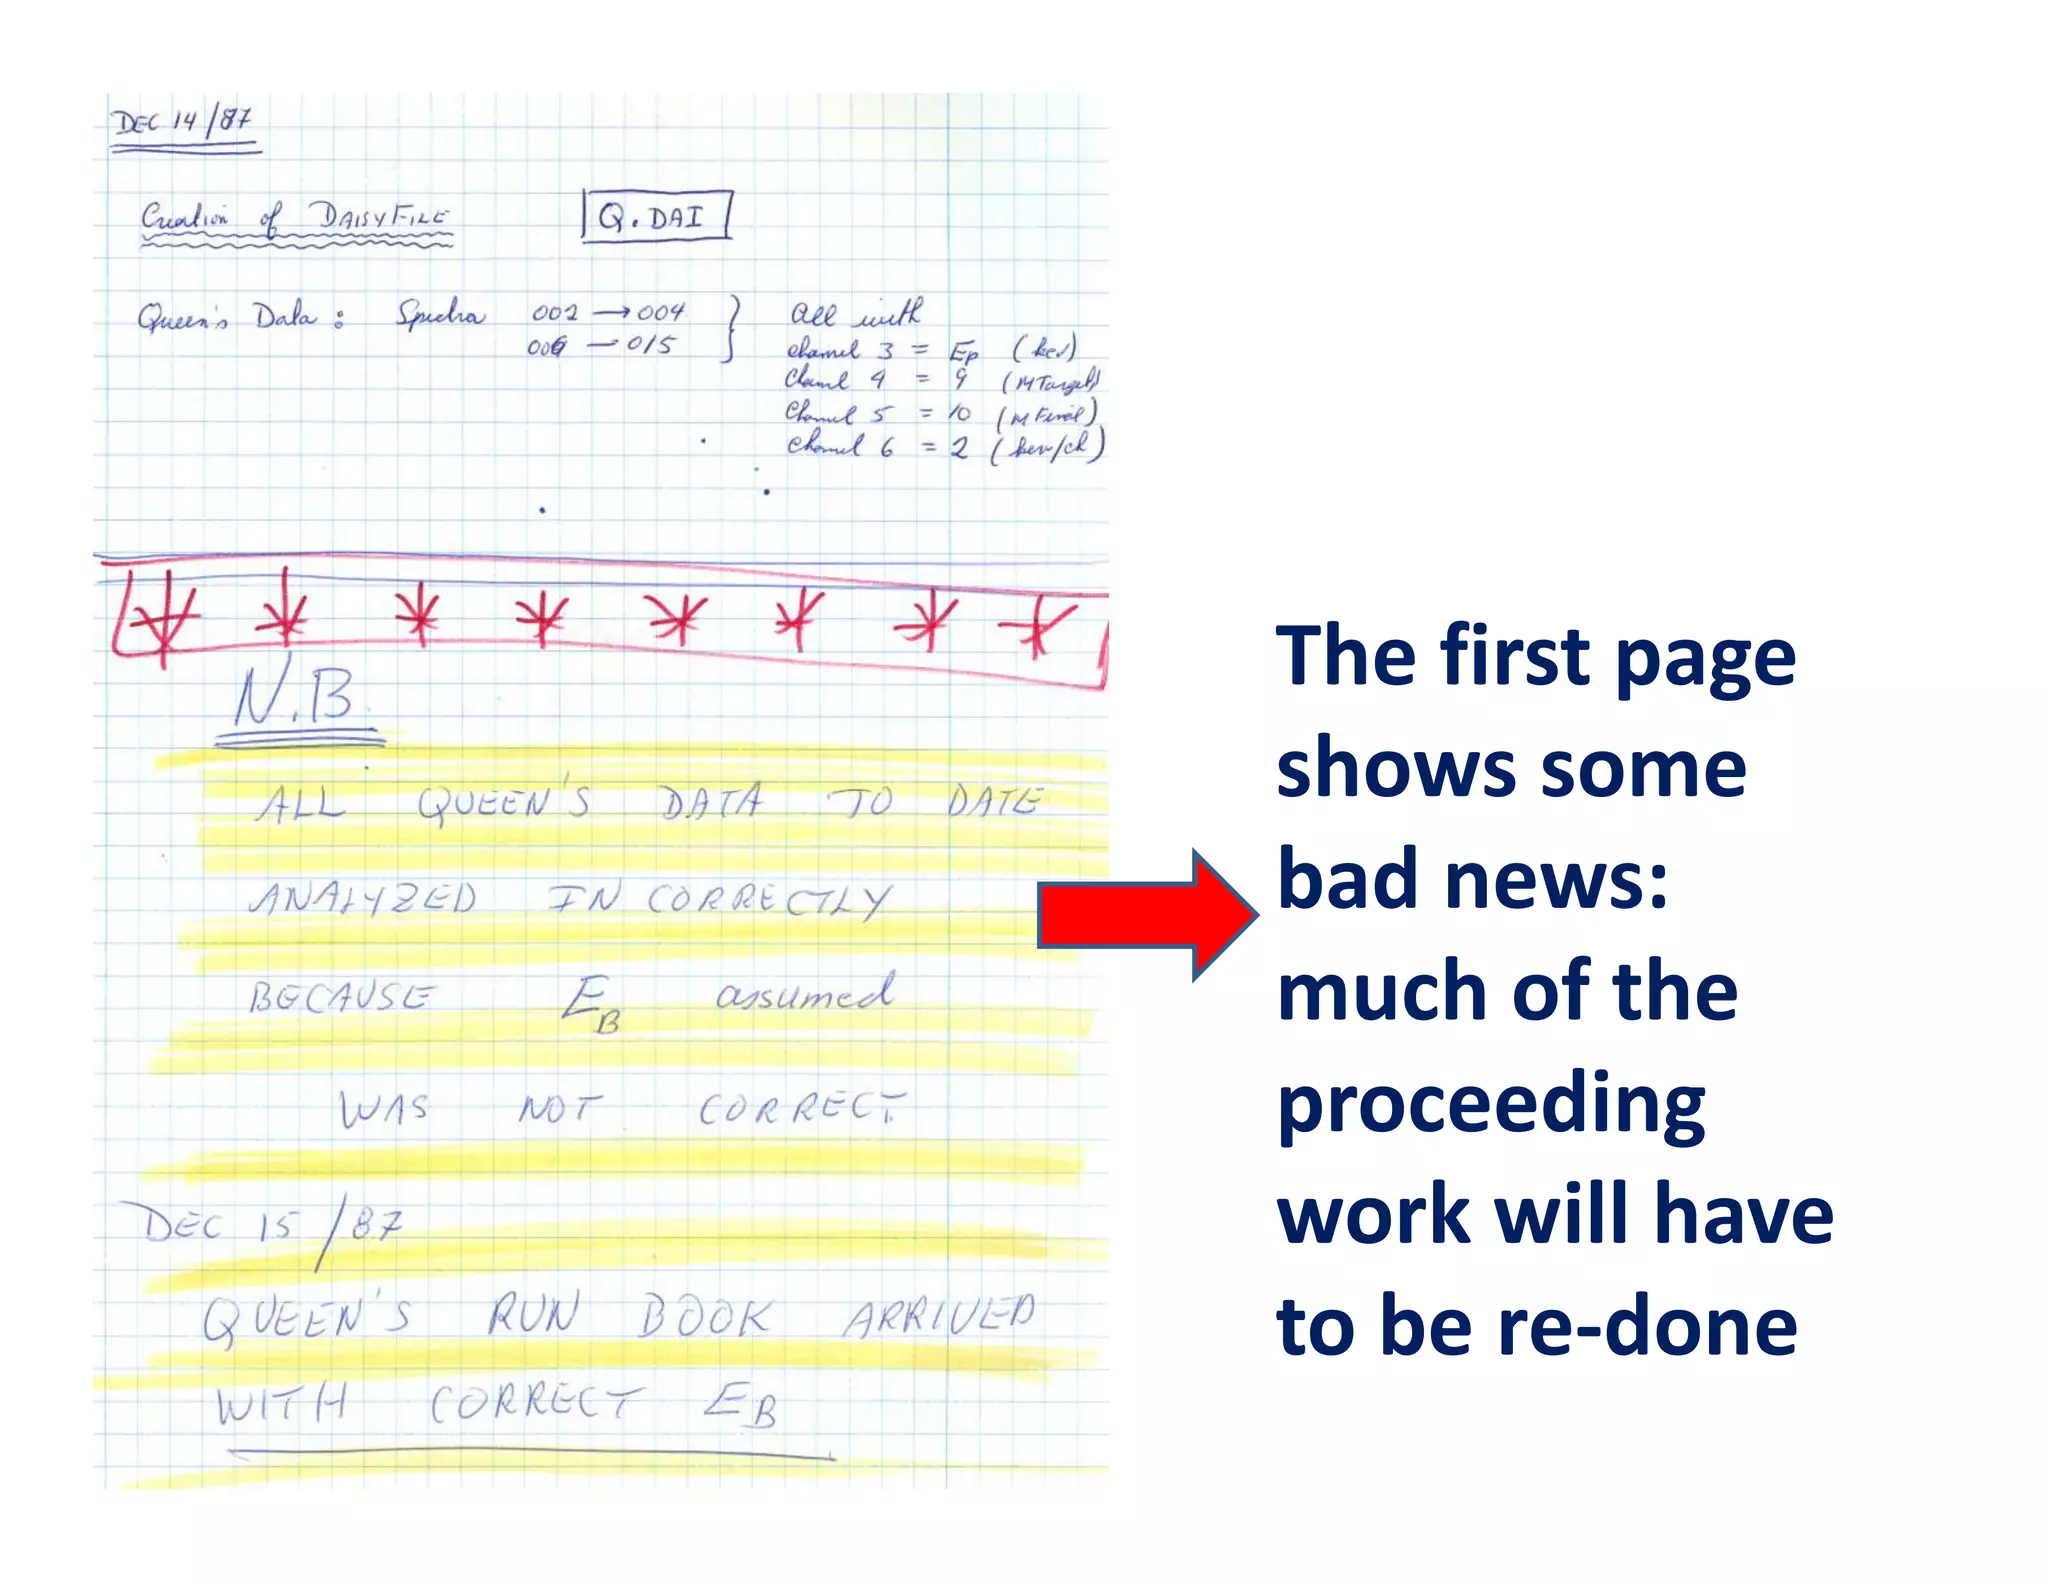 DEC 14/87
Creation of DAISYFILE Q.DAI
Queen's Data: Spectra 002 → 004 } all with
006 — 015
channel 3 = Ep (kev)
Channel 4 = 9 (MTarget)
Channel 5 = 10 (MFinal)
Channel 6 = 2 (kev/ch)
N.B.
ALL QUEEN'S DATA TO DATE
ANALYZED INCORRECTLY
BECAUSE EB assumed
WAS NOT CORRECT.
DEC 15/87
QUEEN'S RUN BOOK ARRIVED
WITH CORRECT EB
The first page
shows some
bad news:
much of the
proceeding
work will have
to be re-done